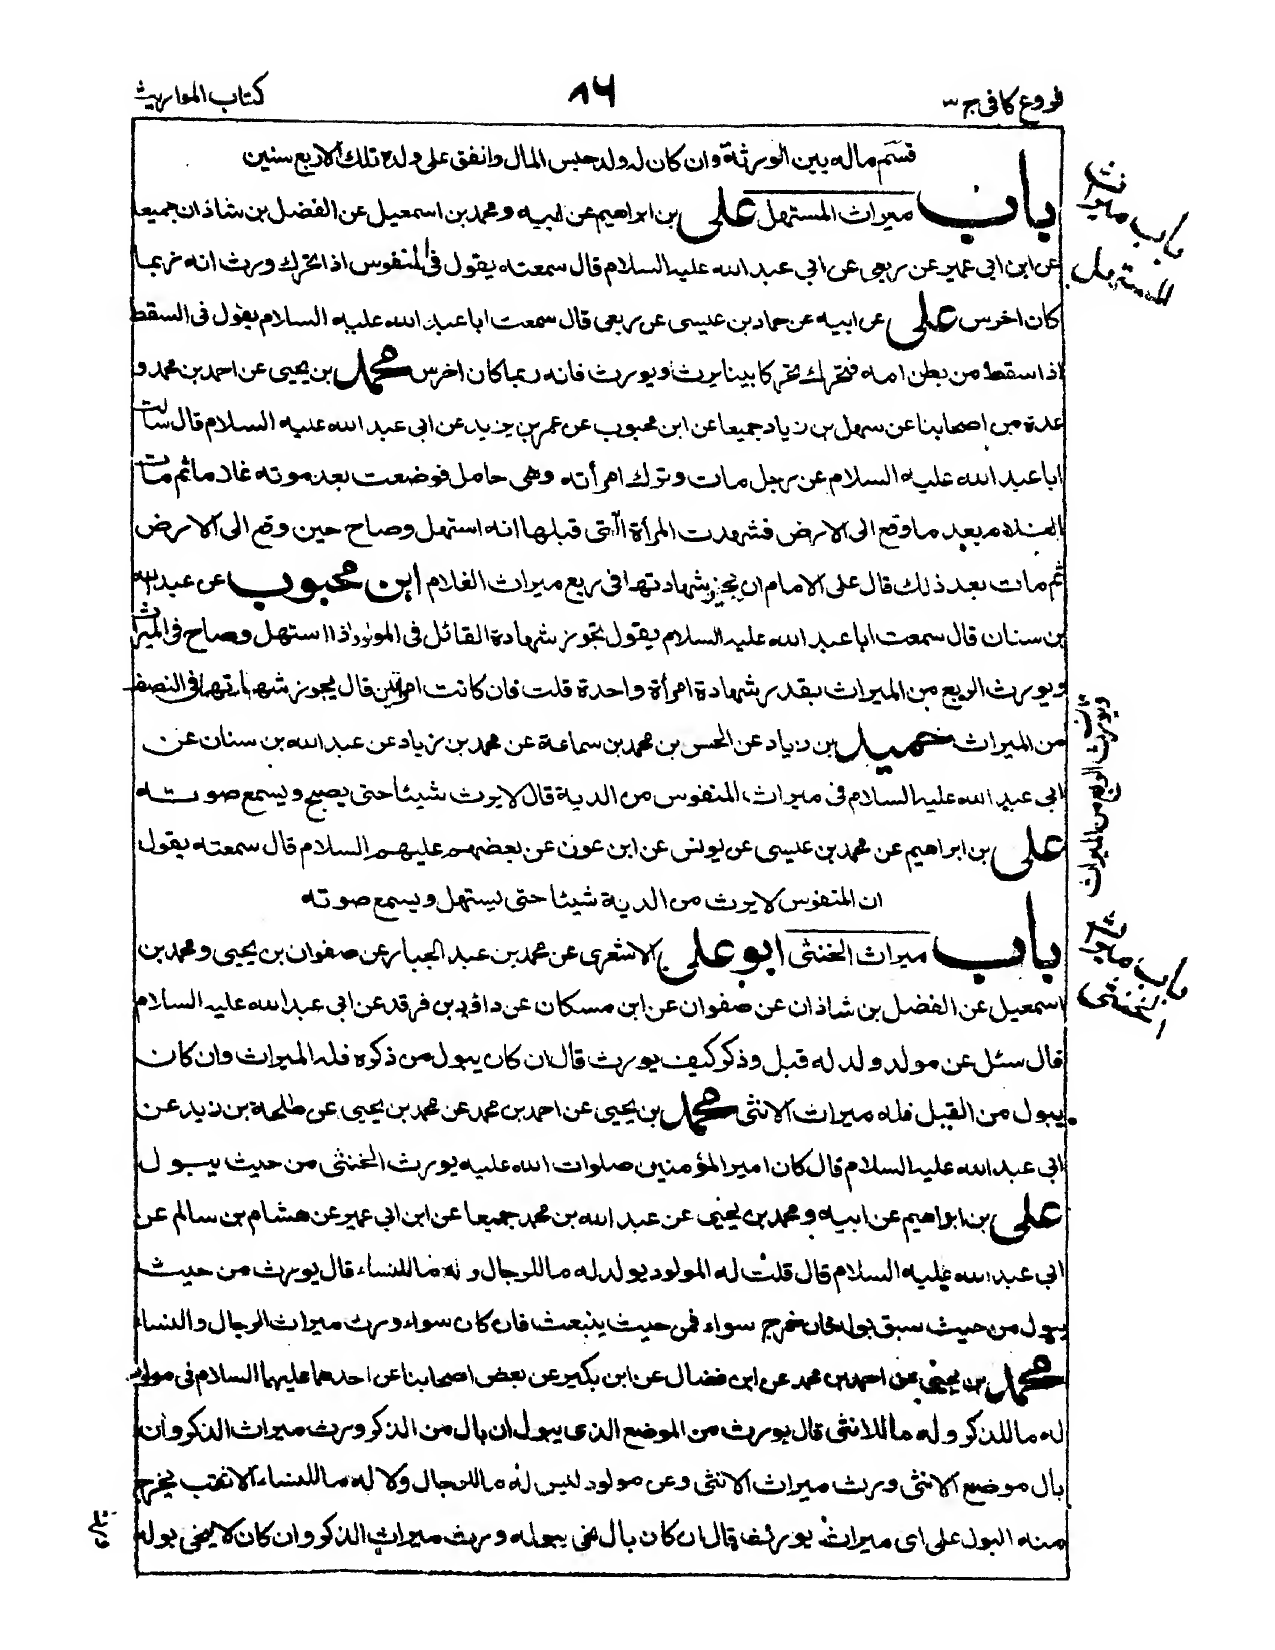 فروع كافى ج٣
٨٦
كتاب المواريث
قسّم ماله بين الورثة وان كان له ولد حبس المال وانفق على ولده تلك الاربع سنين
باب ميراث المستهل على بن ابراهيم عن ابيه و محمد بن اسمعيل عن الفضل بن شاذان جميعا
عن ابن ابى عمير عن ربعى عن ابى عبد الله عليه السلام قال سمعته يقول فى المنفوس اذا تحرك ورث انه ربما
كان اخرس على عن ابيه عن حماد بن عيسى عن ربعى قال سمعت ابا عبد الله عليه السلام يقول فى السقط
اذا سقط من بطن امه فتحرك تحركا بينا يرث ويورث فانه ربما كان اخرس محمد بن يحيى عن احمد بن محمد و
عدة من اصحابنا عن سهل بن زياد جميعا عن ابن محبوب عن عمر بن يزيد عن ابى عبد الله عليه السلام قال سالت
ابا عبد الله عليه السلام عن رجل مات وترك امرأته وهى حامل فوضعت بعد موته غلاما ثم مات
الغلام بعد ما وقع الى الارض فشهدت المرأة الّتى قبلها انه استهل وصاح حين وقع الى الارض
ثم مات بعد ذلك قال على الامام ان يجيز شهادتها فى ربع ميراث الغلام ابن محبوب عن عبد الله
بن سنان قال سمعت ابا عبد الله عليه السلام يقول تجوز شهادة القائل فى المولود اذا استهل وصاح فى الميراث
ويورث الربع من الميراث بقدر شهادة امرأة واحدة قلت فان كانت امرأتين قال يجوز شهادتهما فى النصف
من الميراث حميد بن زياد عن الحسن بن محمد بن سماعة عن محمد بن زياد عن عبد الله بن سنان عن
ابى عبد الله عليه السلام فى ميراث المنفوس من الدية قال لا يرث شيئا حتى يصيح ويسمع صوته
على بن ابراهيم عن محمد بن عيسى عن يونس عن ابن عون عن بعضهم عليهم السلام قال سمعته يقول
ان المنفوس لا يرث من الدية شيئا حتى يستهل ويسمع صوته
باب ميراث الخنثى ابو على الاشعرى عن محمد بن عبد الجبار عن صفوان بن يحيى و محمد بن
اسمعيل عن الفضل بن شاذان عن صفوان عن ابن مسكان عن داود بن فرقد عن ابى عبد الله عليه السلام
قال سئل عن مولود ولد له قبل وذكر كيف يورث قال ان كان يبول من ذكره فله الميراث وان كان
يبول من القبل فله ميراث الانثى محمد بن يحيى عن احمد بن محمد عن محمد بن يحيى عن طلحة بن زيد عن
ابى عبد الله عليه السلام قال كان امير المؤمنين صلوات الله عليه يورث الخنثى من حيث يبول
على بن ابراهيم عن ابيه و محمد بن يحيى عن عبد الله بن محمد جميعا عن ابن ابى عمير عن هشام بن سالم عن
ابى عبد الله عليه السلام قال قلت له المولود يولد له ما للرجال وله ما للنساء قال يورث من حيث
يبول من حيث سبق بوله فان خرج سواء فمن حيث ينبعث فان كان سواء ورث ميراث الرجال والنساء
محمد بن يحيى عن احمد بن محمد عن ابن فضال عن ابن بكير عن بعض اصحابنا عن احدهما عليهما السلام فى مولود
له ما للذكر وله ما للانثى قال يورث من الموضع الذى يبول ان بال من الذكر ورث ميراث الذكر وان
بال موضع الانثى ورث ميراث الانثى وعن مولود ليس له ما للرجال ولا له ما للنساء الا ثقب يخرج
منه البول على اى ميراث يورث قال ان كان بال نحى ببوله ورث ميراث الذكر وان كان لا ينحى بوله
باب ميراث
المستهل
ويورث الربع من الميراث
باب ميراث
الخنثى